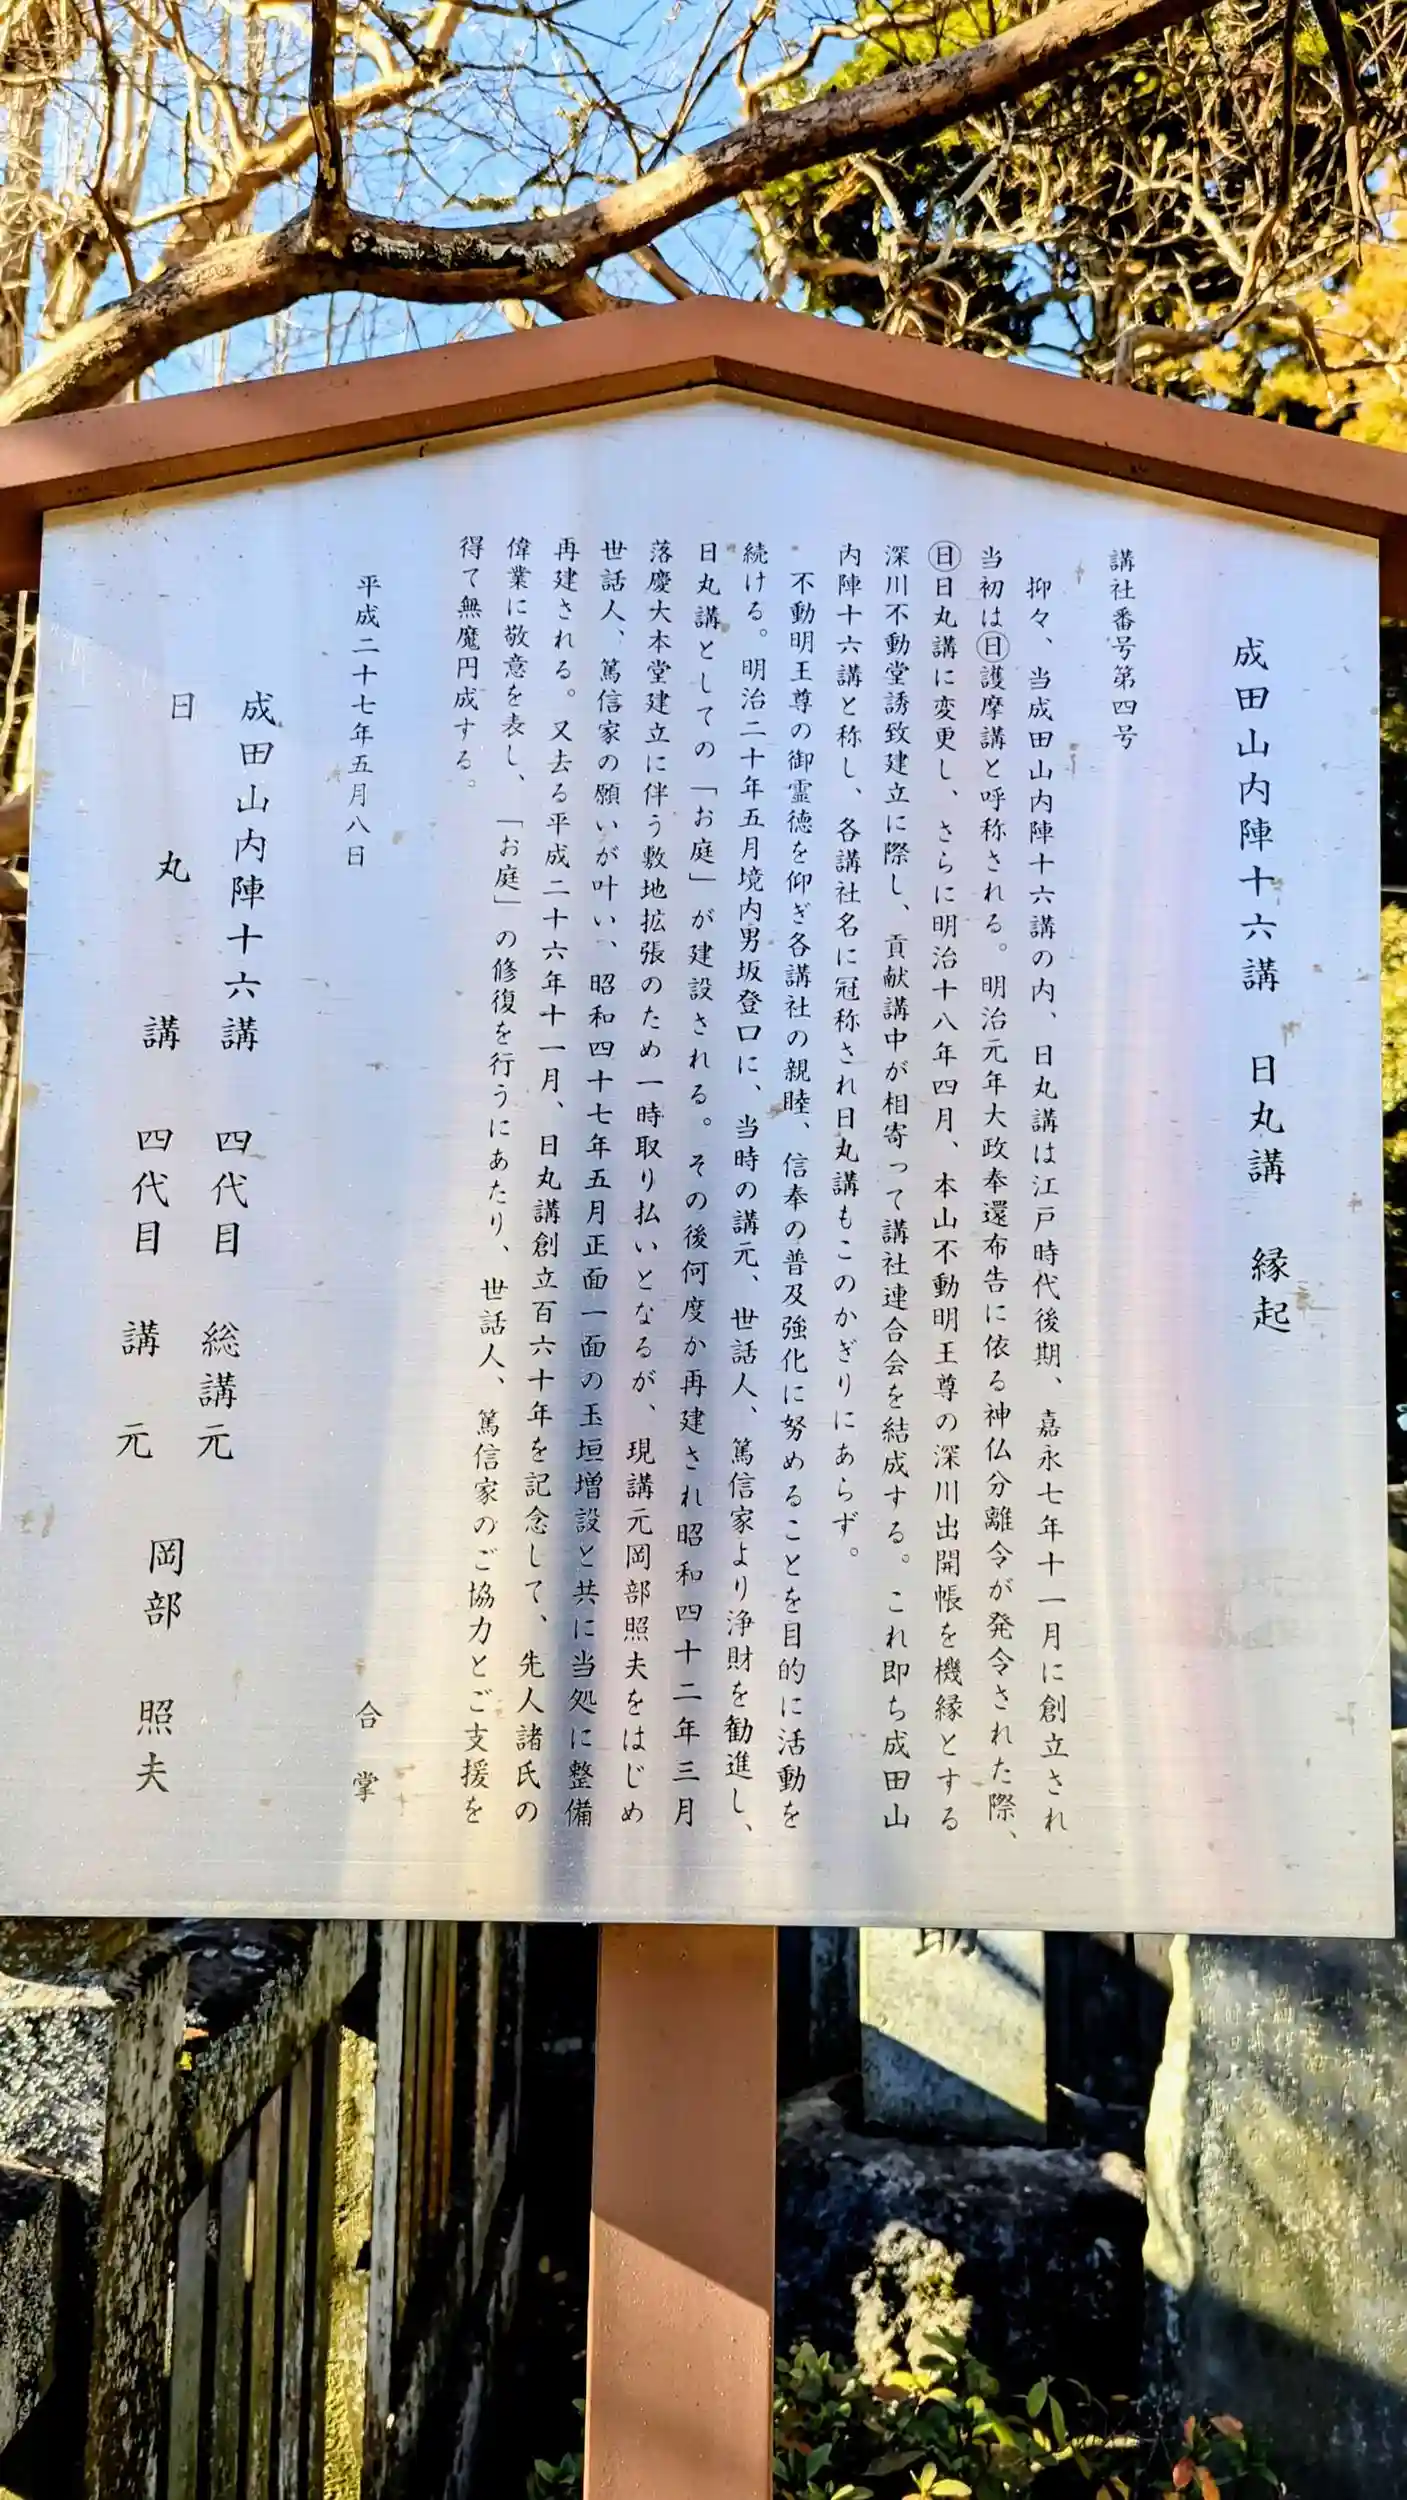 成田山内陣十六講　日丸講　縁起
講社番号第四号
抑々、当成田山内陣十六講の内、日丸講は江戸時代後期、嘉永七年十一月に創立され
当初は㊐護摩講と呼称される。明治元年大政奉還布告に依る神仏分離令が発令された際、
㊐日丸講に変更し、さらに明治十八年四月、本山不動明王尊の深川出開帳を機縁とする
深川不動堂誘致建立に際し、貢献講中が相寄って講社連合会を結成する。これ即ち成田山
内陣十六講と称し、各講社名に冠称され日丸講もこのかぎりにあらず。
不動明王尊の御霊徳を仰ぎ各講社の親睦、信奉の普及強化に努めることを目的に活動を
続ける。明治二十年五月境内男坂登口に、当時の講元、世話人、篤信家より浄財を勧進し、
日丸講としての「お庭」が建設される。その後何度か再建され昭和四十二年三月
落慶大本堂建立に伴う敷地拡張のため一時取り払いとなるが、現講元岡部照夫をはじめ
世話人、篤信家の願いが叶い、昭和四十七年五月正面一面の玉垣増設と共に当処に整備
再建される。又去る平成二十六年十一月、日丸講創立百六十年を記念して、先人諸氏の
偉業に敬意を表し、「お庭」の修復を行うにあたり、世話人、篤信家のご協力とご支援を
得て無魔円成する。
合掌
平成二十七年五月八日
成田山内陣十六講　四代目　総講元
日丸講　四代目　講元
岡部　照夫
助